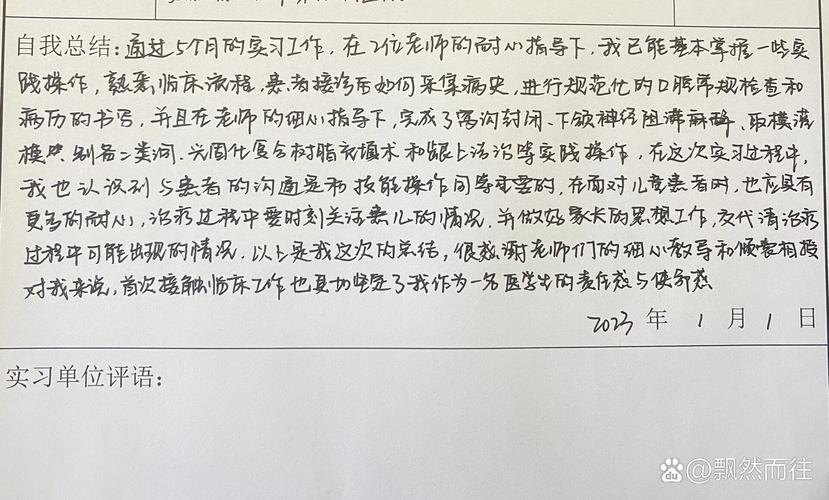 自我总结：通过5个月的实习工作，在各位老师的耐心指导下，我已能基本掌握一些实
践操作，熟悉临床流程，患者接诊后如何采集病史，进行规范化的口腔常规检查和
病历的书写，并且在老师的细心指导下，完成了窝沟封闭、下颌神经阻滞麻醉、取模灌
模、制备二类洞、光固化复合树脂充填术和龈上洁治等实践操作，在这次实习过程中，
我也认识到与患者的沟通是和技能操作同等重要的，在面对儿童患者时，也应具有
更多的耐心，治疗过程中要时刻关注患儿的情况，并做好家长的思想工作，交代清治疗
过程中可能出现的情况。以上是我这次的总结，很感谢老师们的细心教导和倾囊相授
对我来说，首次接触临床工作也更坚定了我作为一名医学生的责任感与使命感
2023 年 1 月 1 日
实习单位评语：
Baidu @飘然而往